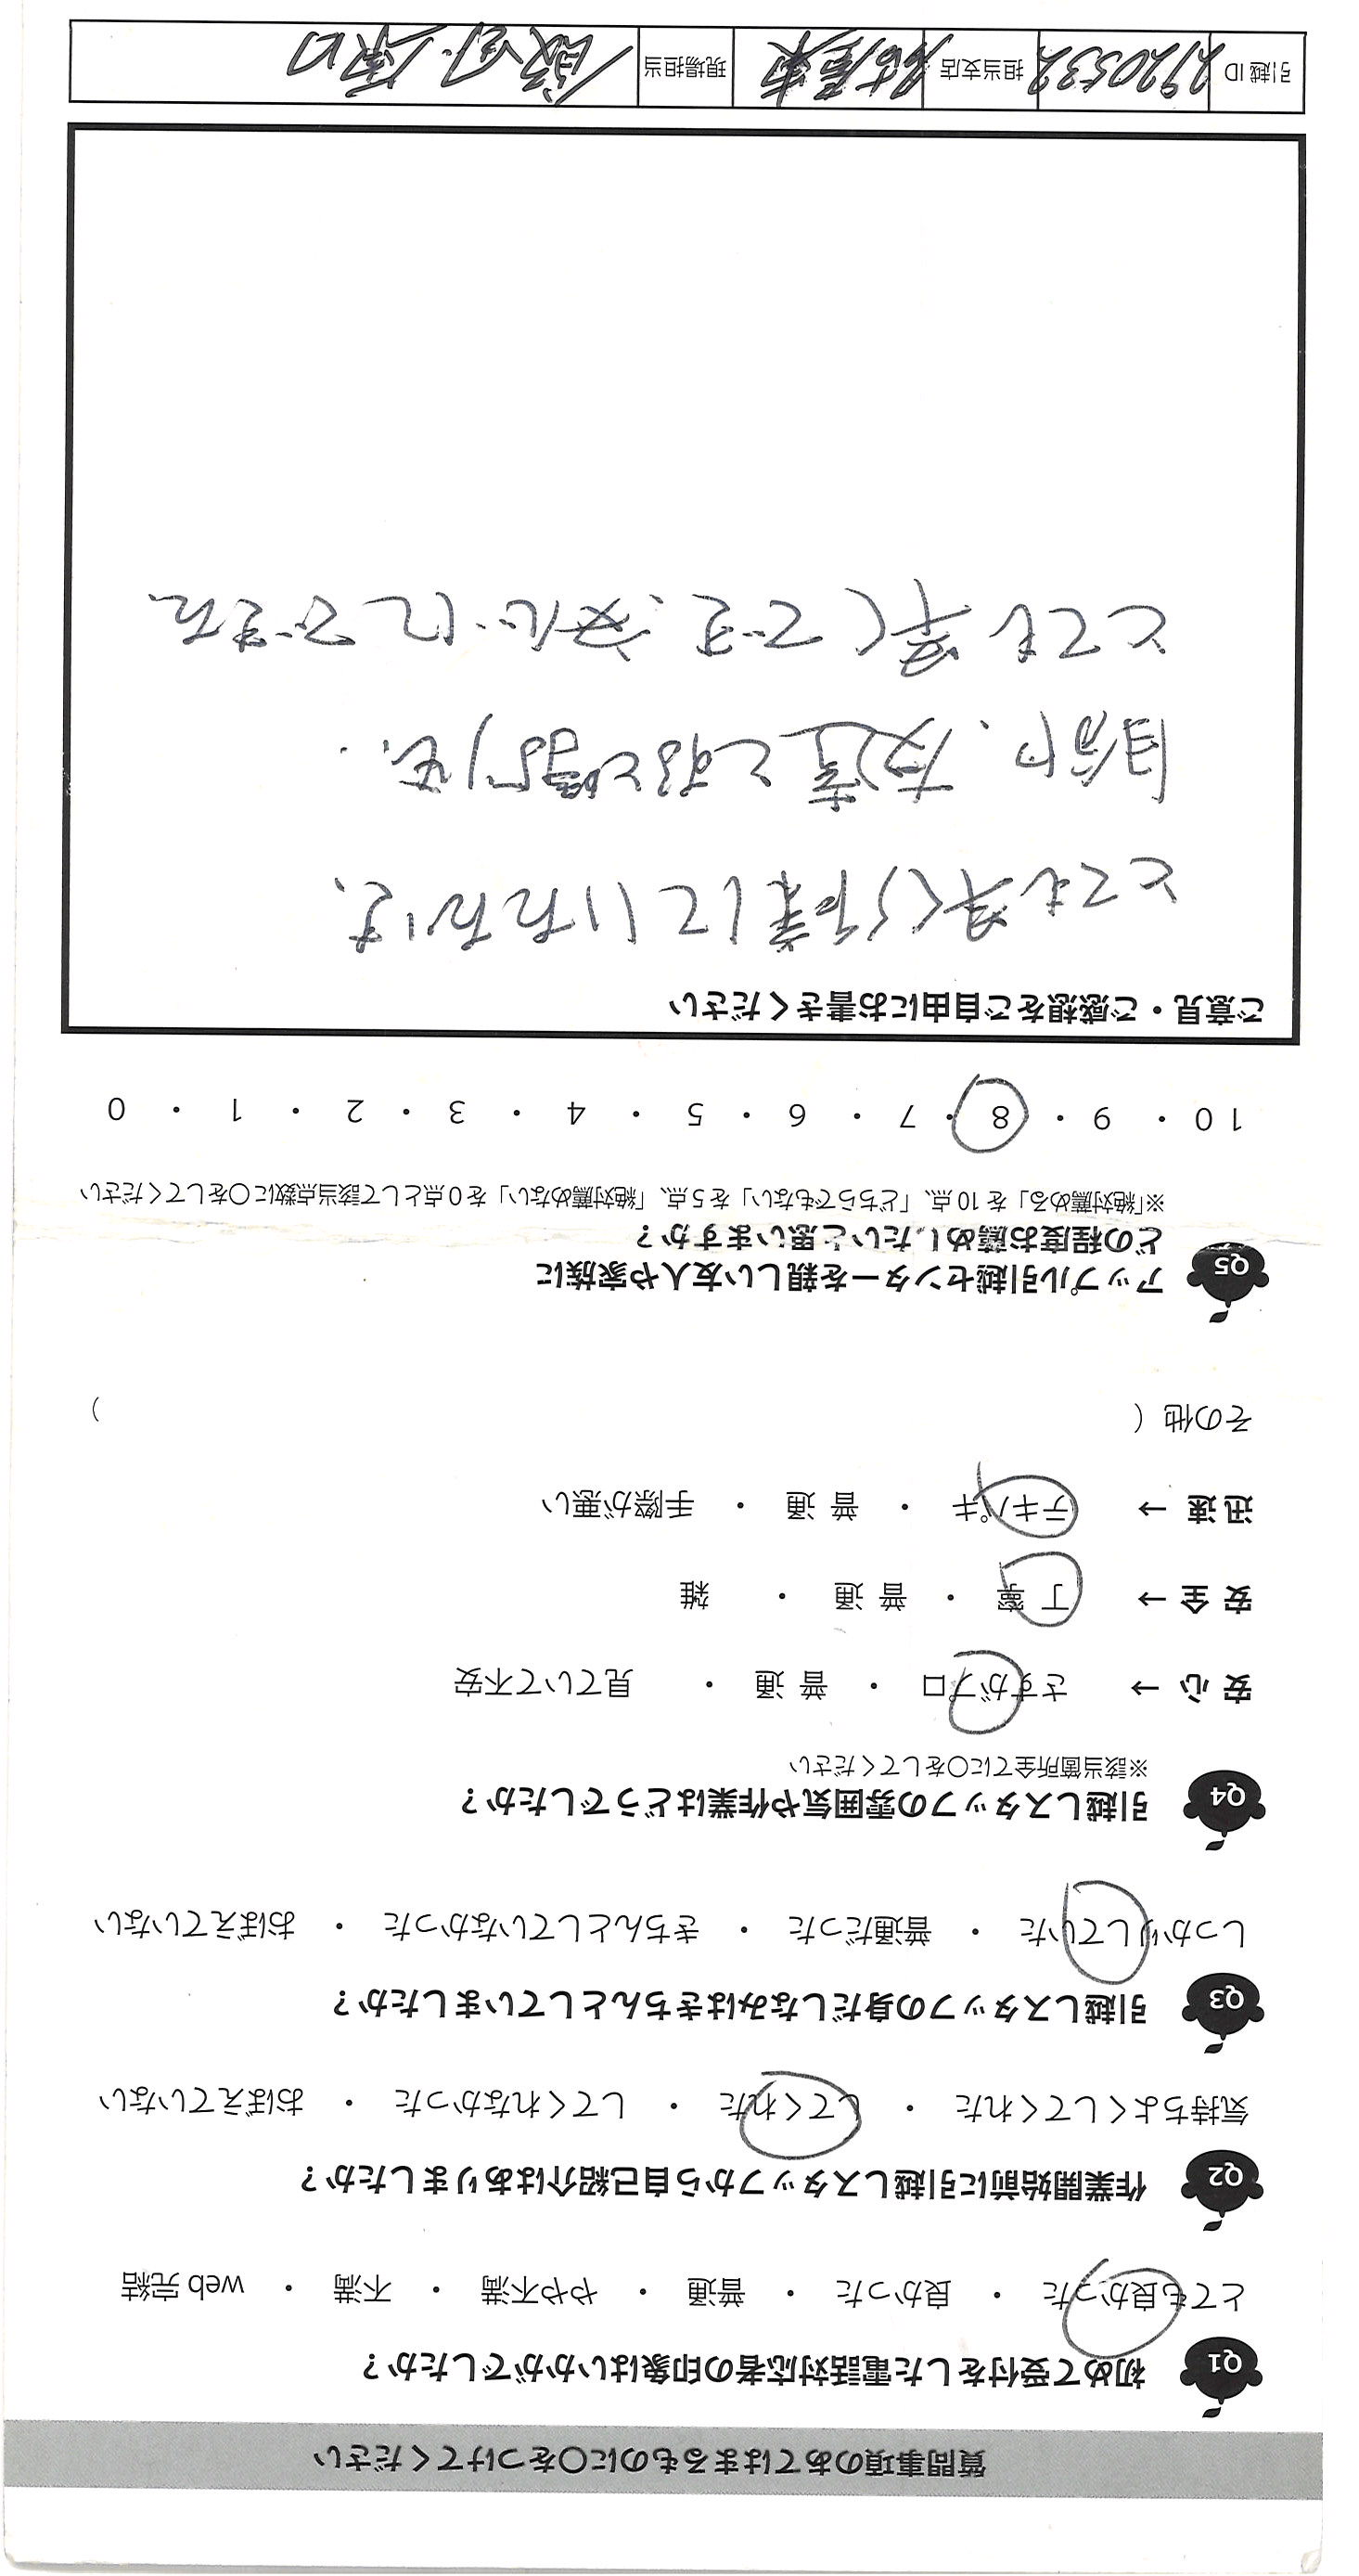 質問事項のあてはまるものに〇をつけてください
Q1 初めて受付をした電話対応者の印象はいかがでしたか？
とても良かった ・ 良かった ・ 普通 ・ やや不満 ・ 不満 ・ web 完結
Q2 作業開始前に引越しスタッフから自己紹介はありましたか？
気持ちよくしてくれた ・ してくれた ・ してくれなかった ・ おぼえていない
Q3 引越しスタッフの身だしなみはきちんとしていましたか？
しっかりしていた ・ 普通だった ・ きちんとしていなかった ・ おぼえていない
Q4 引越しスタッフの雰囲気や作業はどうでしたか？
※該当箇所全てに〇をしてください
安心 → さすがプロ ・ 普通 ・ 見ていて不安
安全 → 丁寧 ・ 普通 ・ 雑
迅速 → テキパキ ・ 普通 ・ 手際が悪い
その他 (                )
Q5 アップル引越センターを親しい友人や家族に
どの程度お薦めしたいと思いますか？
※「絶対薦める」を 10 点、「どちらでもない」を 5 点、「絶対薦めない」を 0 点として該当点数に〇をしてください
10 ・ 9 ・ 8 ・ 7 ・ 6 ・ 5 ・ 4 ・ 3 ・ 2 ・ 1 ・ 0
ご意見・ご感想をご自由にお書きください
とても早く作業していただけ、
自分や、友達とすると時間も、
とても早くでき、安心にできた
引越 ID 2920532 担当支店 名古屋東 現場担当